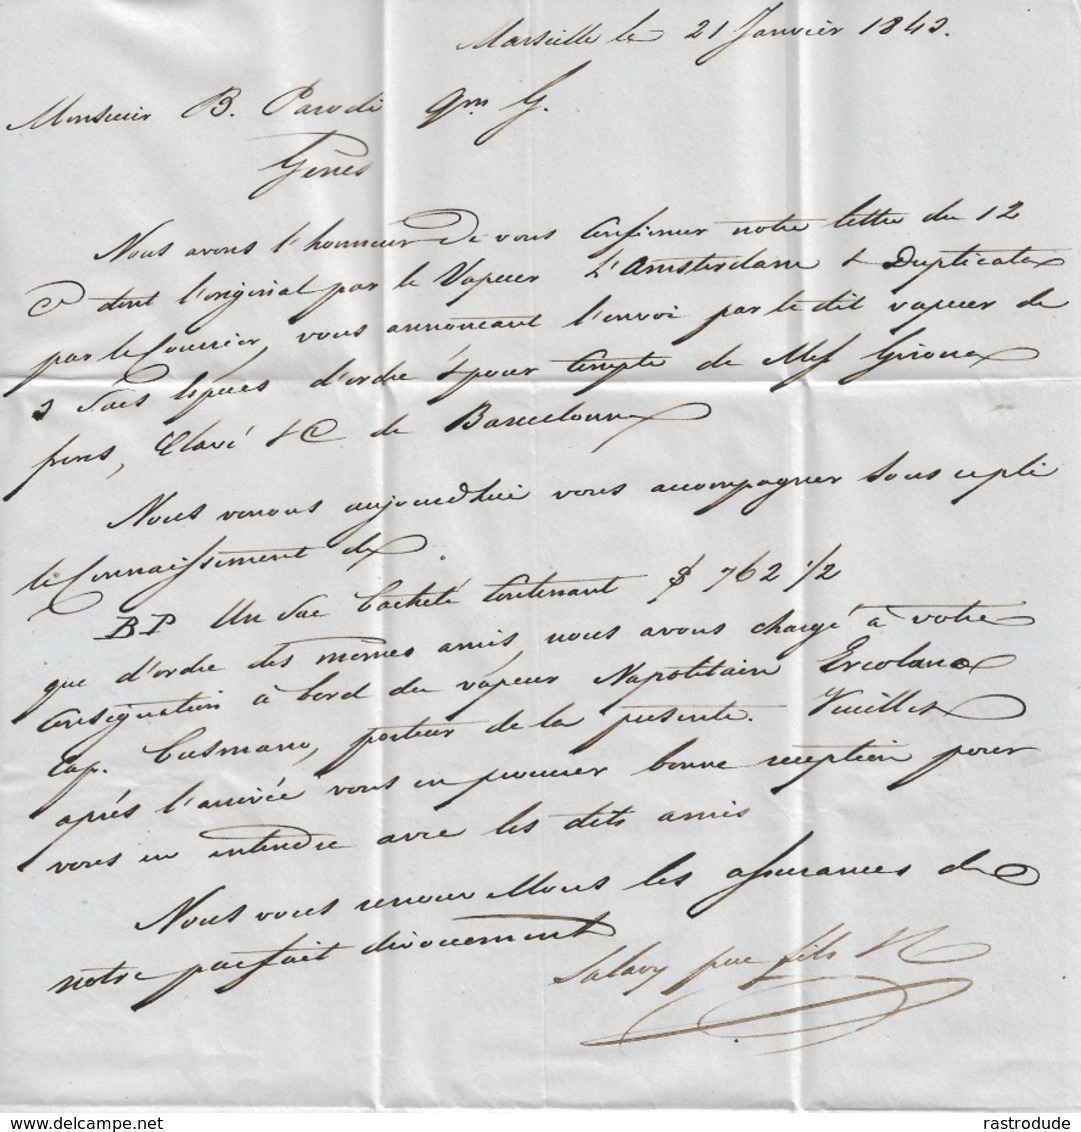 Marseille le 21 Janvier 1843.
Monsieur B. Parodi qm G.
Gênes
Nous avons l'honneur de vous confirmer notre lettre du 12
Ct dont l'original par le Vapeur L'Amsterdam & Duplicata
par le Courrier, vous annonçant l'envoi par le dit vapeur de
3 Sacs espèces d'ordre & pour compte de Mess Girona
freres, Clavé & C de Barcelonne
Nous venons aujourdhui vous accompagner sous ce pli
le Connaissement de
BP Un Sac Cacheté Contenant $ 762 1/2
que d'ordre des mêmes amis, nous avons chargé à votre
Consignation à bord du vapeur Napolitain Ercolano
Cap. Cusmano, porteur de la présente. Veuillez
après l'arrivée vous en procurer bonne reception pour
vous en entendre avec les dits amis
Nous vous renouvellons les assurances de
notre parfait dévouement
Salavy pere fils
rastrodude